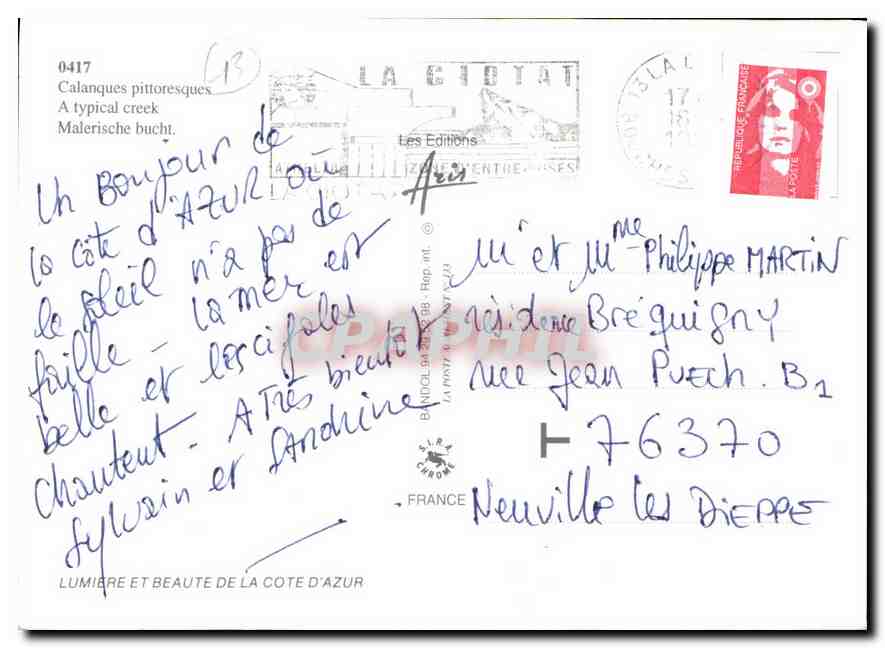 0417
13
Calanques pittoresques
A typical creek
Malerische bucht.
LA CIOTAT
ZONE D'ENTREPRISES
Les Editions
Aris
13 LA C
17
18
RÉPUBLIQUE FRANÇAISE
LA POSTE
Un Bonjour de
la côte d'AZUR où
le soleil n'a pas de
faille - la mer est
belle et les cigales
chantent - A Très bientôt
Sylvain et Sandrine
BANDOL 94 29 52 98 - Rep. int. ©
CPAPHIL
S.I.R.A.
CHROME
FRANCE
Mr et Mme Philippe MARTIN
résidence Bréquigny
rue Jean PUECH. B1
T 76370
Neuville les DIEPPE
LUMIERE ET BEAUTE DE LA COTE D'AZUR